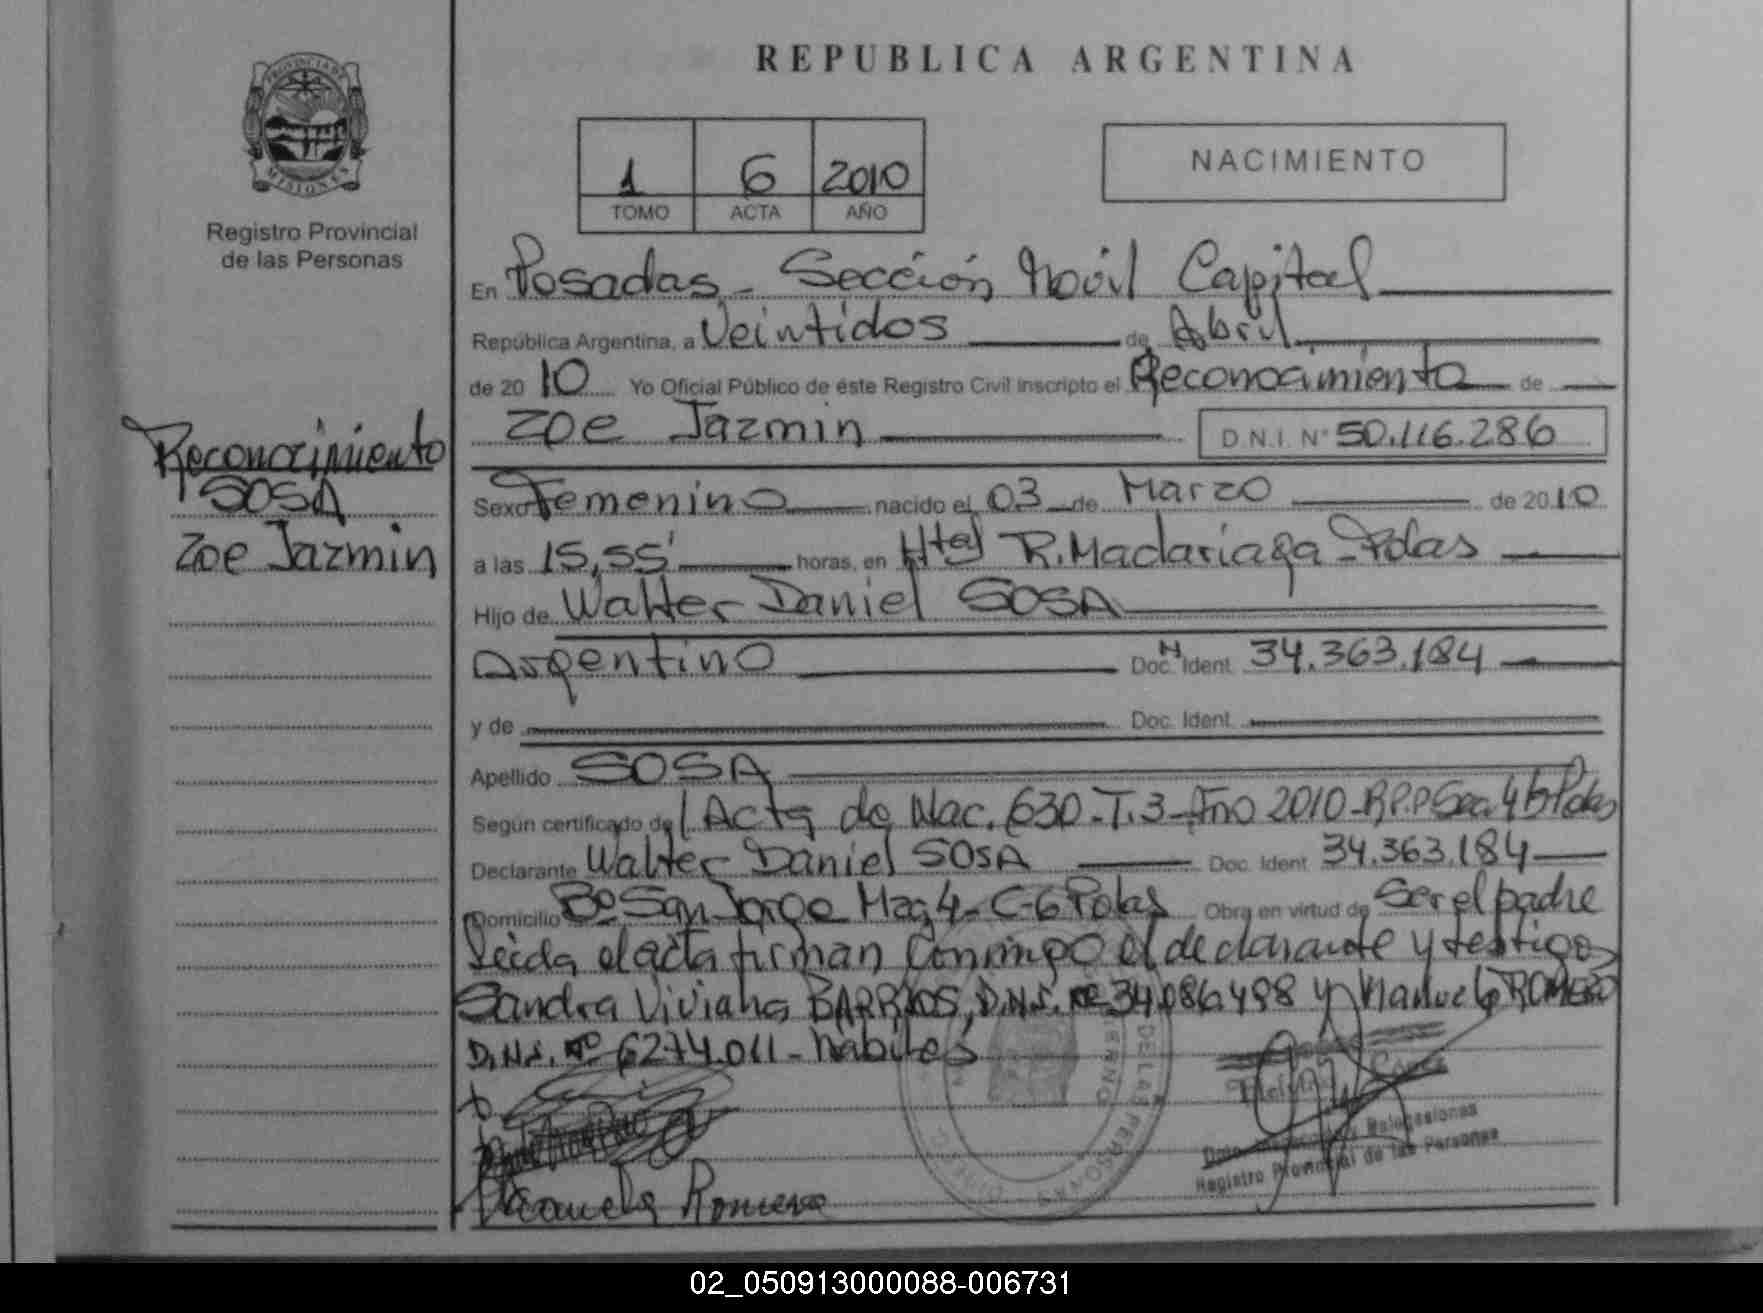 REPUBLICA ARGENTINA
PROVINCIA DE
MISIONES
Registro Provincial
de las Personas
1 6 2010
TOMO ACTA AÑO
NACIMIENTO
En Posadas - Sección Móvil Capital
República Argentina, a Veintidos de Abril
de 20 10 Yo Oficial Público de éste Registro Civil inscripto el Reconocimiento de
Zoe Jazmin D.N.I. Nº 50.116.286
Reconocimiento
SOSA
Zoe Jazmin
Sexo Femenino nacido el 03 de Marzo de 20 10
a las 15,55' horas, en Htal R. Madariaga - Pdas
Hijo de Walter Daniel SOSA
Argentino Doc. Ident. 34.363.184
y de Doc. Ident.
Apellido SOSA
Según certificado de Acta de Nac. 630 - T. 3 - Año 2010 - R.P.P Sec. 4 Pdas
Declarante Walter Daniel SOSA Doc. Ident. 34.363.184
Domicilio Bº San Jorge Mza 4 - C-6 Pdas Obra en virtud de Ser el padre
Leida el acta firman Conmigo el declarante y testigos
Sandra Viviana BARRIOS, D.N.I. Nº 34.086.498 y Manuela ROMERO
D.N.I. Nº 6.274.011 - habiles
DE LAS PERSONAS
Delegaciones
Registro Provincial de las Personas
Manuela Romero
02_050913000088-006731